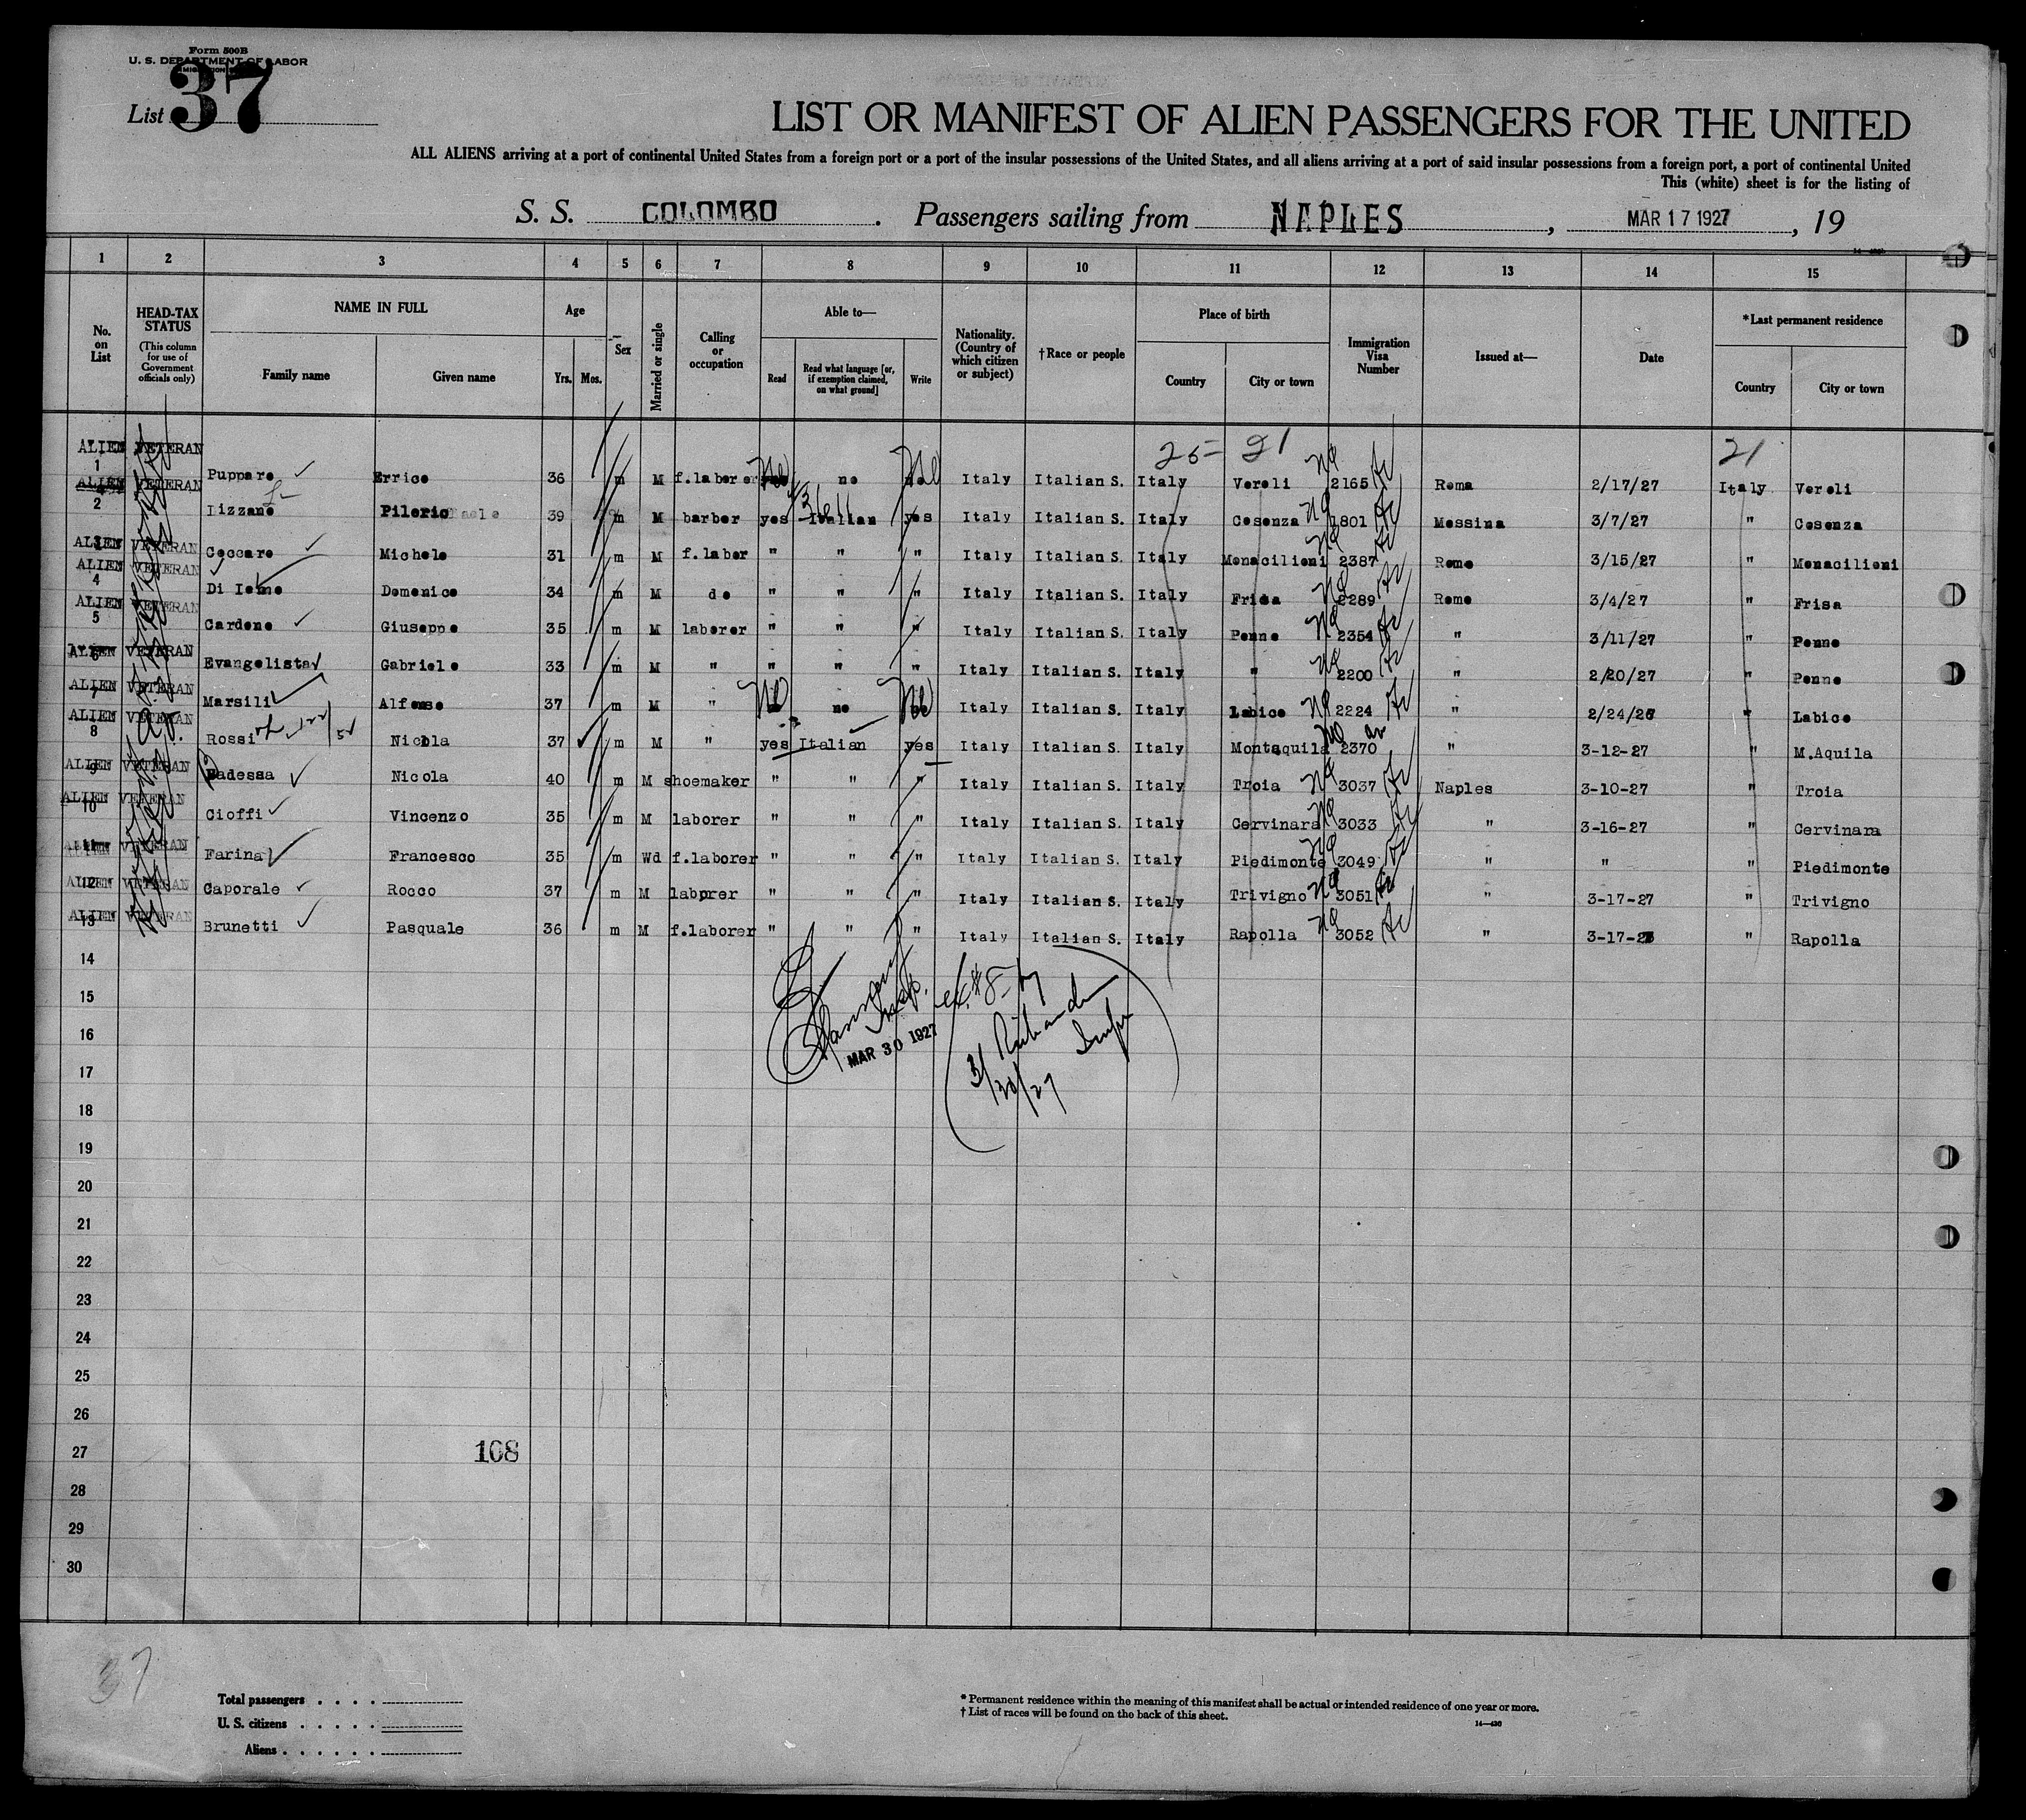 Form 500B
U. S. DEPARTMENT OF LABOR
List 37
LIST OR MANIFEST OF ALIEN PASSENGERS FOR THE UNITED
ALL ALIENS arriving at a port of continental United States from a foreign port or a port of the insular possessions of the United States, and all aliens arriving at a port of said insular possessions from a foreign port, a port of continental United
This (white) sheet is for the listing of
S. S. COLOMBO . Passengers sailing from NAPLES , MAR 17 1927 , 19
1 2 3 4 5 6 7 8 9 10 11 12 13 14 15
No. on List
HEAD-TAX STATUS
(This column for use of Government officials only)
NAME IN FULL
Family name Given name
Age
Yrs. Mos.
Sex
Married or single
Calling or occupation
Able to—
Read
Read what language [or, if exemption claimed, on what ground]
Write
Nationality. (Country of which citizen or subject)
†Race or people
Place of birth
Country City or town
Immigration Visa Number
Issued at—
Date
*Last permanent residence
Country City or town
25 21 21
ALIEN VETERAN
1 Puppare Errico 36 m M f.laborer No no No Italy Italian S. Italy Veroli 2165 Roma 2/17/27 Italy Veroli
ALIEN VETERAN
2 Lizzano 39 m M barber yes Italian yes Italy Italian S. Italy Cosenza 1801 Messina 3/7/27 " Cosenza
ALIEN VETERAN
3 Ceccare Michele 31 m M f.labor " " " Italy Italian S. Italy Monacilioni 2387 Rome 3/15/27 " Monacilioni
ALIEN VETERAN
4 Di Domenico 34 m M do " " " Italy Italian S. Italy Frisa 2289 Rome 3/4/27 " Frisa
ALIEN VETERAN
5 Cardone Giuseppe 35 m M laborer " " " Italy Italian S. Italy Penne 2354 " 3/11/27 " Penne
ALIEN VETERAN
6 Evangelista Gabriele 33 m M " " " " Italy Italian S. Italy " 2200 " 2/20/27 " Penne
ALIEN VETERAN
7 Marsili Alfonso 37 m M " No no No Italy Italian S. Italy Labico 2224 " 2/24/26 " Labico
ALIEN VETERAN
8 Rossi Nicola 37 m M " yes Italian yes Italy Italian S. Italy Montaquila 2370 " 3-12-27 " M.Aquila
ALIEN VETERAN
9 Badessa Nicola 40 m M shoemaker " " " Italy Italian S. Italy Troia 3037 Naples 3-10-27 " Troia
ALIEN VETERAN
10 Cioffi Vincenzo 35 m M laborer " " " Italy Italian S. Italy Cervinara 3033 " 3-16-27 " Cervinara
ALIEN VETERAN
11 Farina Francesco 35 m Wd f.laborer " " " Italy Italian S. Italy Piedimonte 3049 " " " Piedimonte
ALIEN VETERAN
12 Caporale Rocco 37 m M laborer " " " Italy Italian S. Italy Trivigno 3051 " 3-17-27 " Trivigno
ALIEN VETERAN
13 Brunetti Pasquale 36 m M f.laborer " " " Italy Italian S. Italy Rapolla 3052 " 3-17-27 " Rapolla
14
15
16 MAR 30 1927
17 3/30/27
18
19
20
21
22
23
24
25
26
27 108
28
29
30
37
Total passengers . . . .
U. S. citizens . . . . .
Aliens . . . . . .
* Permanent residence within the meaning of this manifest shall be actual or intended residence of one year or more.
† List of races will be found on the back of this sheet.
14—430